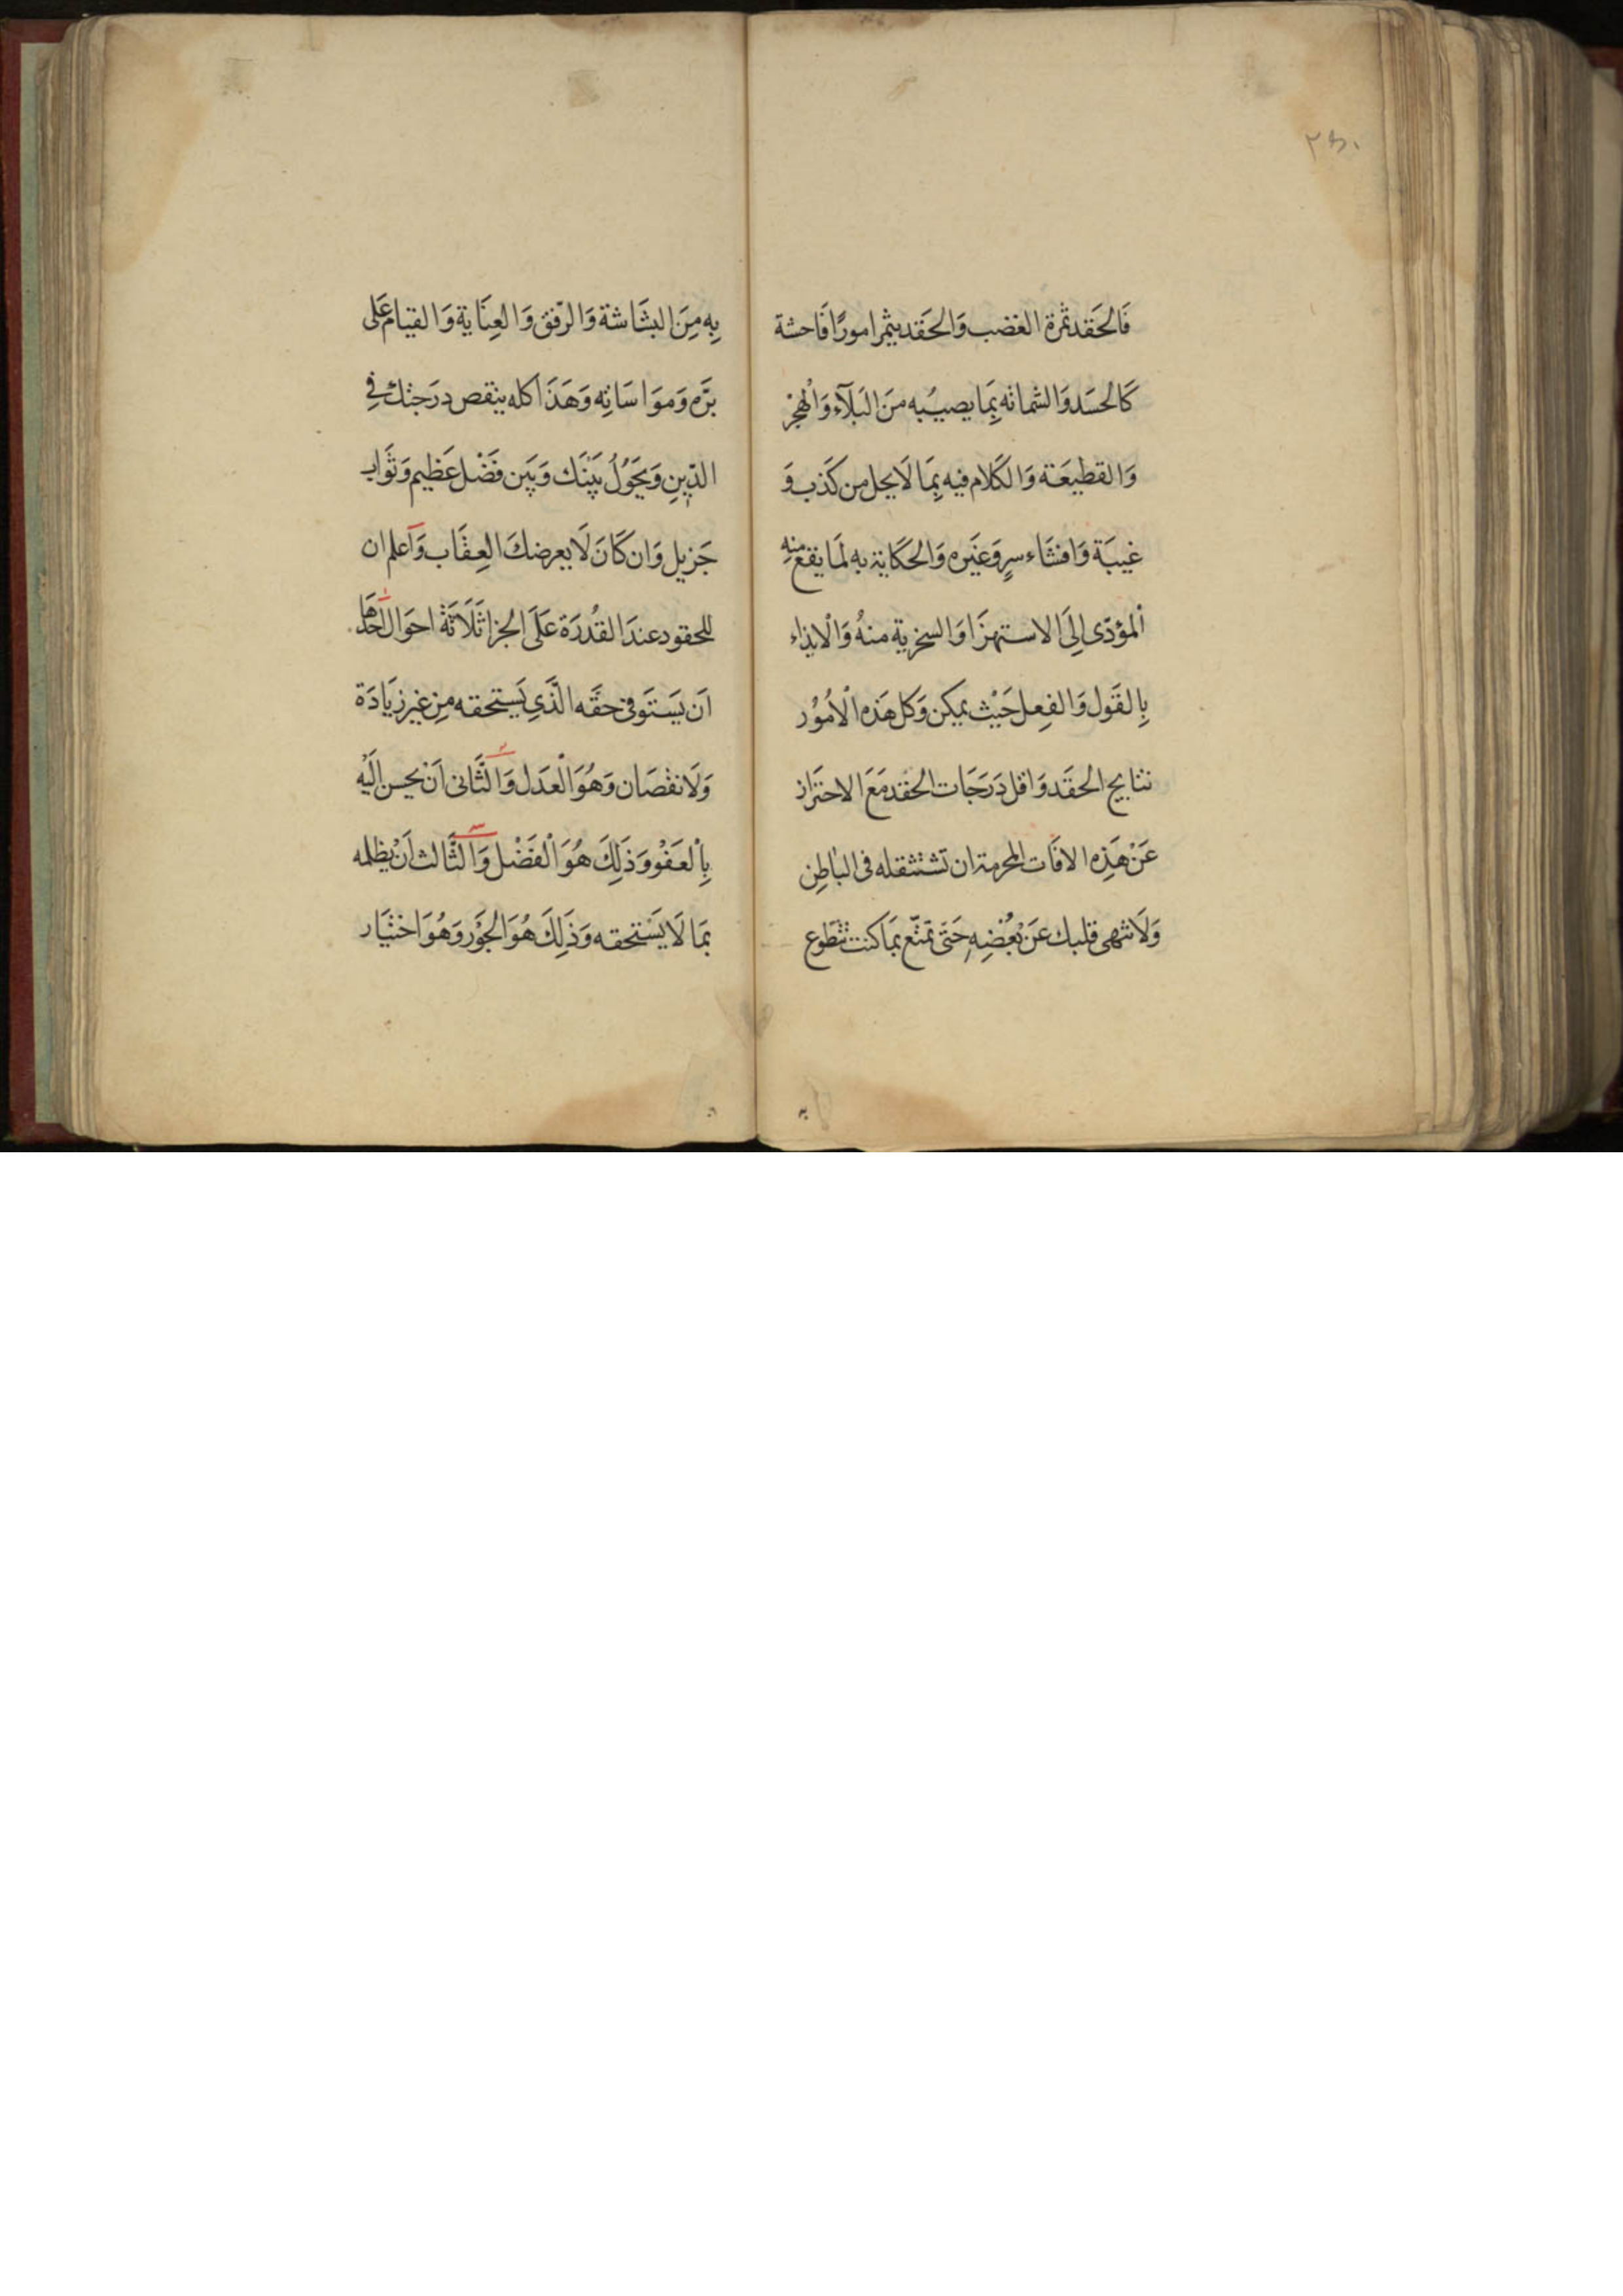 ٢٥٠
فَالحَقد ثمرة الغضب وَالحَقد يثمر امورًا فَاحشة
كَالحسَد وَالشماته بِمَا يصيبُبه منَ البَلآء وَالْهجْر
وَالقطيعَة وَالكَلام فيه بِمَا لَا يحل من كَذب وَ
غيبَة وَافشَاء سرٍ وَغيَره وَالحكَاية به لمَا يقع منه
ألمؤدّى الِىَ الاستهزَا وَالسخرية منهُ وَالْايذاء
بِالقَول وَالفِعل حَيْث يمكن وَكل هَذه الْامُوْر
نتايج الحقَد وَاقل دَرَجَات الحقد مَعَ الاحتَراز
عَنْ هَذِه الافَات المحرمة ان تشتثقله فى البٰاطِن
وَلَا تنهى قلبك عَنْ بُغْضِهِ حَتىَ تمَتنّع بمَا كنت تتطَوع
بِه مِنَ البشَاشة وَالرّفق وَالعِنَاية وَالقيام عَلى
برَّه وَموَاسَاتِه وَهَذَا كله ينقص درَجتك فِي
الدّينِ وَيَحَوُلُ بَيْنَك وَبَيَن فَضْل عَظيم وَثَوابـ
جَزيل وَان كَانَ لَا يعرضكَ العِقَاب وَآعلم ان
للحقود عندَ القُدرَة عَلَى الجزا ثَلَاثَة احوَال احَدهَا
اَن يَستَوفى حقَّه الَّذي يَستحقه مِن غير زيَادَة
وَلَا نقصَان وَهُوَ الْعدَل وَالثَّانى اَنْ يحسن اليَْه
بِالْعَفْو وَذَلِكَ هُوَ الْفَضْل وَالثَّالث اَنْ يظلمه
بمَا لَا يَسْتحقه وَذَلِكَ هُوَ الجَوْر وَهُوَ اختيَار